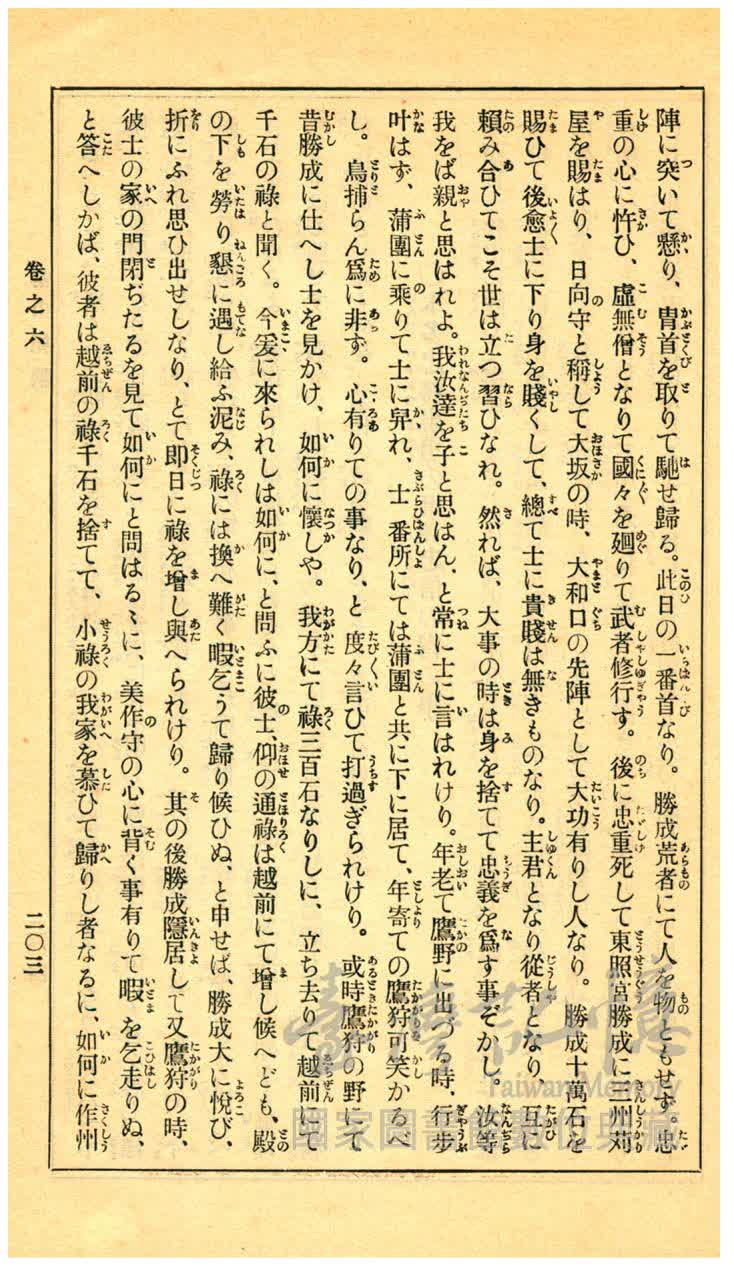 陣に突いて懸り、冑首を取りて馳せ歸る。此日の一番首なり。勝成荒者にて人を物ともせず。忠
重の心に忤ひ、虛無僧となりて國々を廻りて武者修行す。後に忠重死して東照宮勝成に三州苅
屋を賜はり、日向守と稱して大坂の時、大和口の先陣として大功有りし人なり。勝成十萬石を
賜ひて後愈士に下り身を賤くして、總て士に貴賤は無きものなり。主君となり從者となり、互に
賴み合ひてこそ世は立つ習ひなれ。然れば、大事の時は身を捨てて忠義を爲す事ぞかし。汝等
我をば親と思はれよ。我汝達を子と思はん、と常に士に言はれけり。年老て鷹野に出づる時、行步
叶はず、蒲團に乘りて士に舁れ、士番所にては蒲團と共に下に居て、年寄ての鷹狩可笑かるべ
し。鳥捕らん爲に非ず。心有りての事なり、と度々言ひて打過ぎられけり。或時鷹狩の野にて
昔勝成に仕へし士を見かけ、如何に懷しや。我方にて祿三百石なりしに、立ち去りて越前にて
千石の祿と聞く。今爰に來られしは如何に、と問ふに彼士、仰の通祿は越前にて增し候へども、殿
の下を勞り懇に遇し給ふ泥み、祿には換へ難く暇乞うて歸り候ひぬ、と申せば、勝成大に悅び、
折にふれ思ひ出せしなり、とて卽日に祿を增し與へられけり。其の後勝成隱居して又鷹狩の時、
彼士の家の門閉ぢたるを見て如何にと問はるゝに、美作守の心に背く事有りて暇を乞走りぬ、
と答へしかば、彼者は越前の祿千石を捨てて、小祿の我家を慕ひて歸りし者なるに、如何に作州
卷之六
二〇三
臺灣記憶
Taiwan Memory
國家圖書館數位典藏